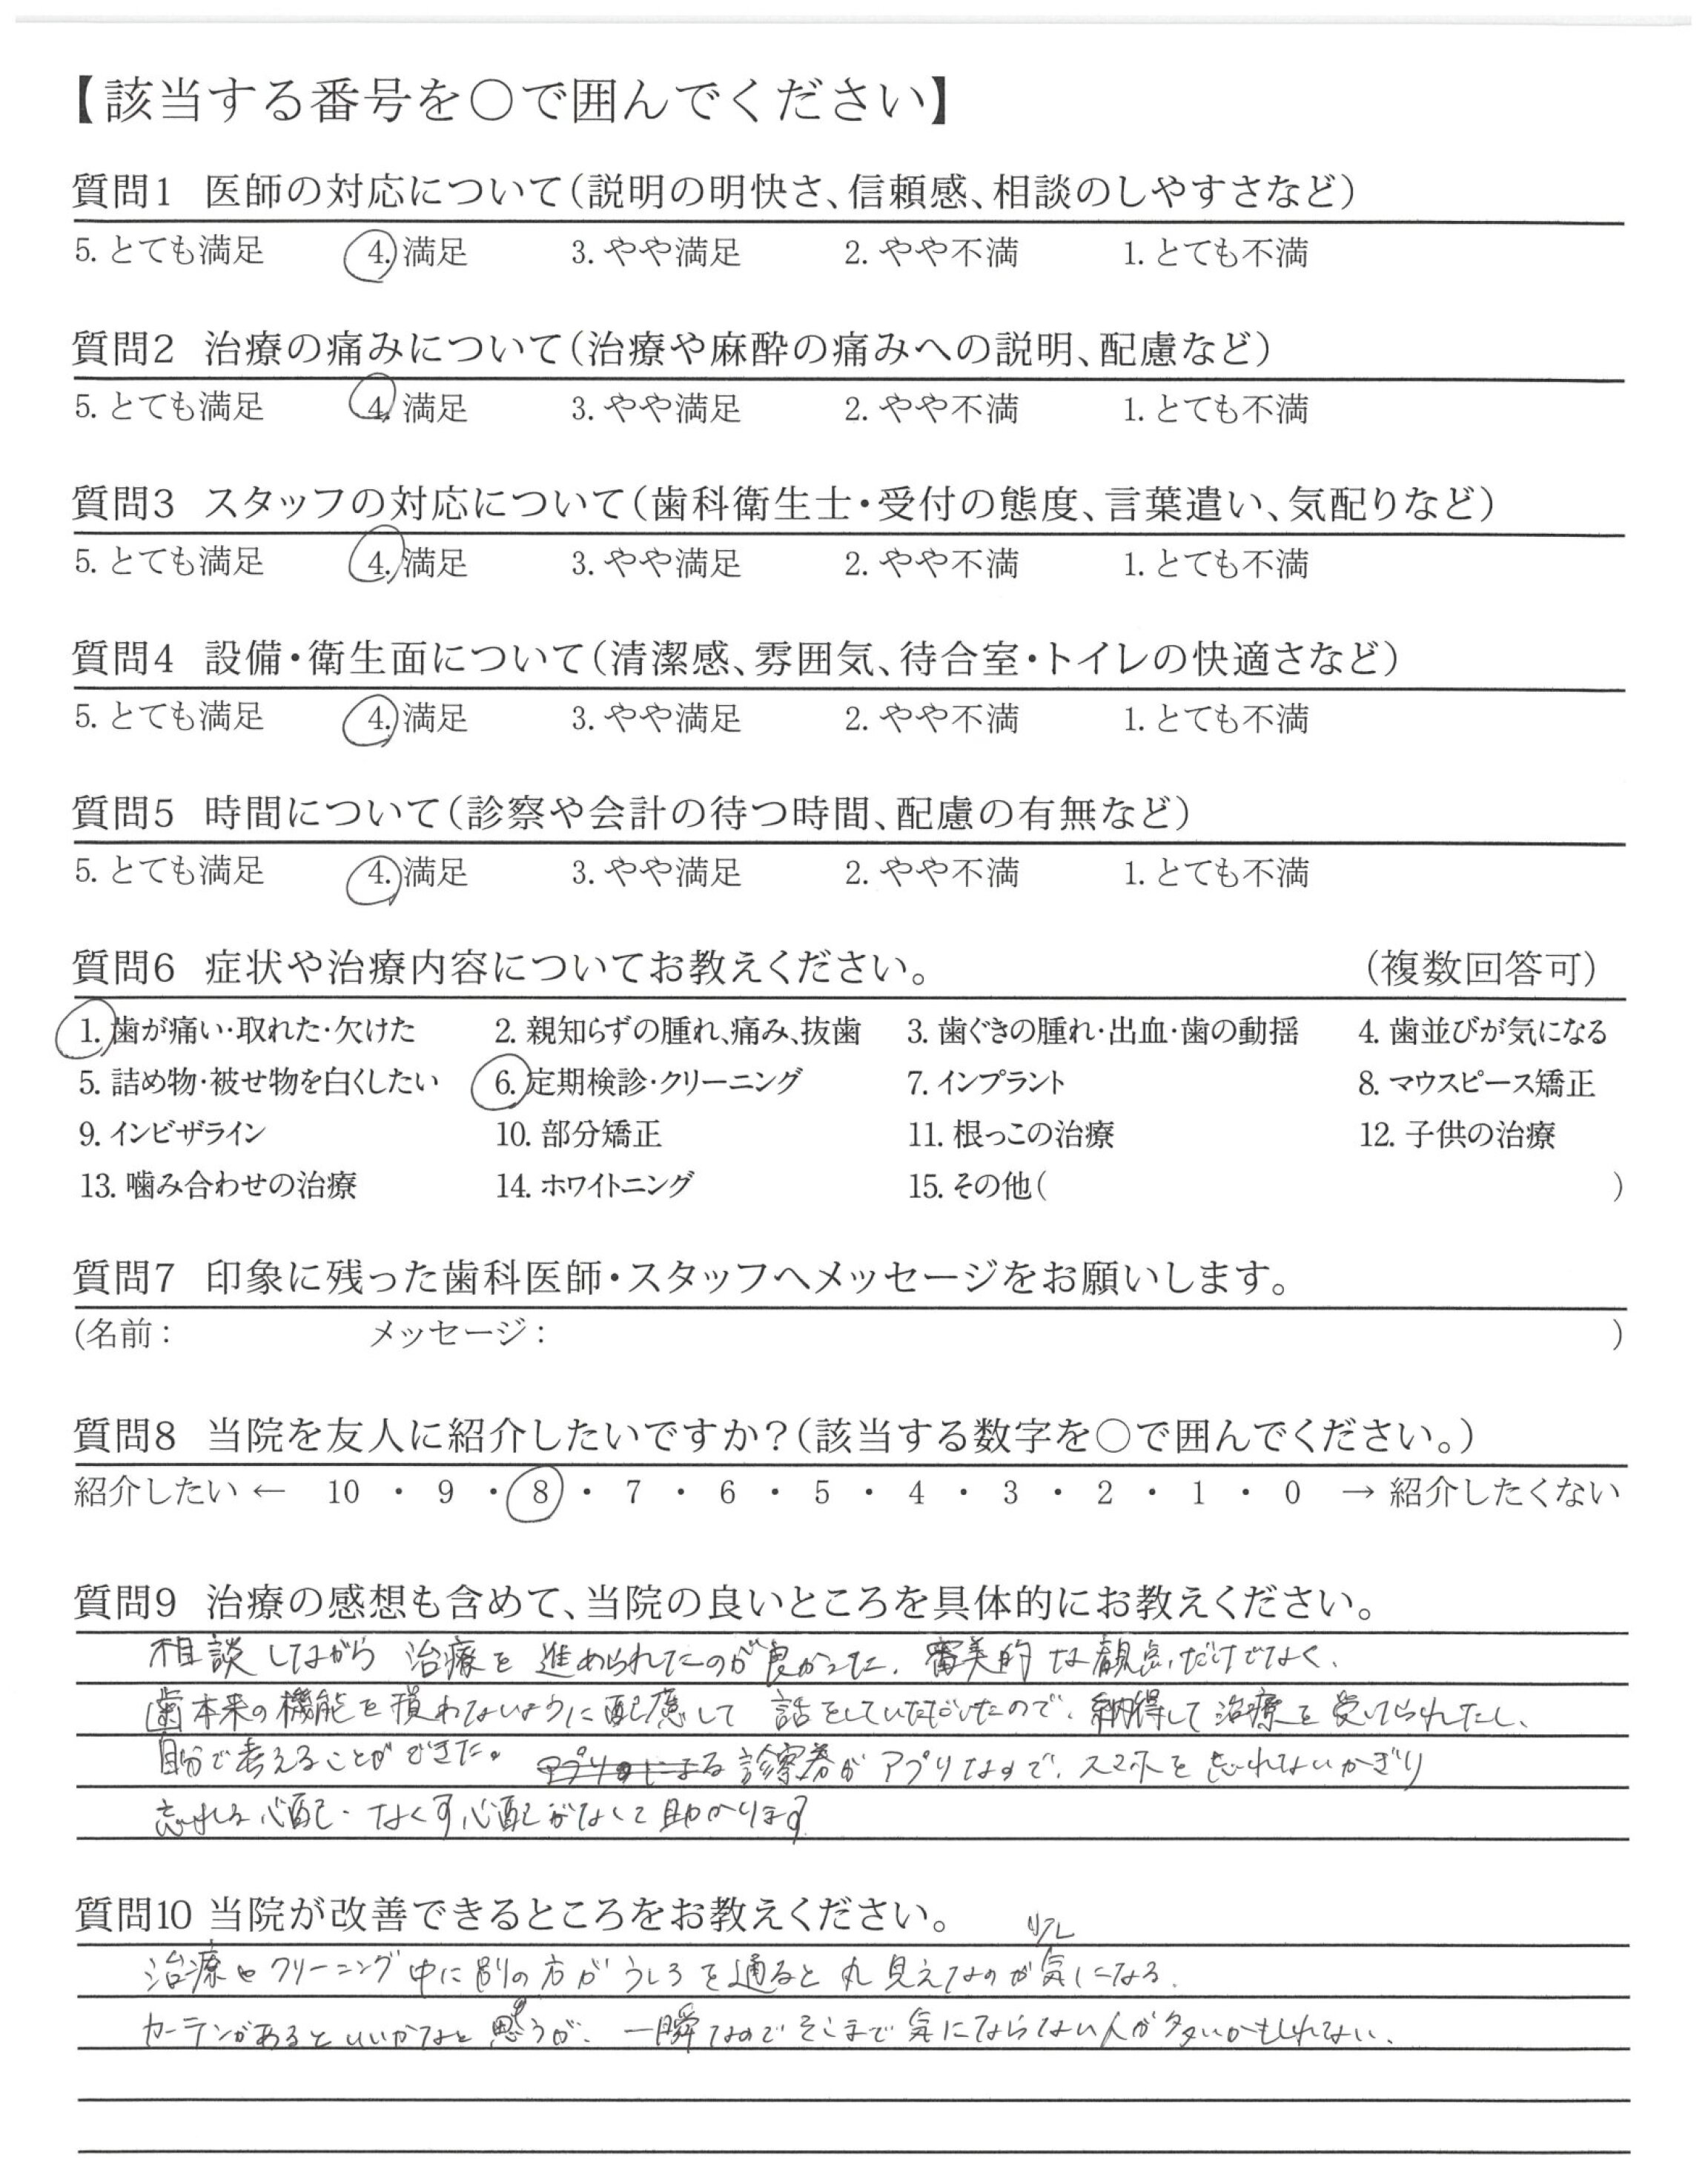 【該当する番号を〇で囲んでください】
質問1 医師の対応について（説明の明快さ、信頼感、相談のしやすさなど）
5. とても満足 4. 満足 3. やや満足 2. やや不満 1. とても不満
質問2 治療の痛みについて（治療や麻酔の痛みへの説明、配慮など）
5. とても満足 4. 満足 3. やや満足 2. やや不満 1. とても不満
質問3 スタッフの対応について（歯科衛生士・受付の態度、言葉遣い、気配りなど）
5. とても満足 4. 満足 3. やや満足 2. やや不満 1. とても不満
質問4 設備・衛生面について（清潔感、雰囲気、待合室・トイレの快適さなど）
5. とても満足 4. 満足 3. やや満足 2. やや不満 1. とても不満
質問5 時間について（診察や会計の待つ時間、配慮の有無など）
5. とても満足 4. 満足 3. やや満足 2. やや不満 1. とても不満
質問6 症状や治療内容についてお教えください。 （複数回答可）
1. 歯が痛い・取れた・欠けた 2. 親知らずの腫れ、痛み、抜歯 3. 歯ぐきの腫れ・出血・歯の動揺 4. 歯並びが気になる
5. 詰め物・被せ物を白くしたい 6. 定期検診・クリーニング 7. インプラント 8. マウスピース矯正
9. インビザライン 10. 部分矯正 11. 根っこの治療 12. 子供の治療
13. 噛み合わせの治療 14. ホワイトニング 15. その他（ ）
質問7 印象に残った歯科医師・スタッフへメッセージをお願いします。
（名前： メッセージ： ）
質問8 当院を友人に紹介したいですか？（該当する数字を〇で囲んでください。）
紹介したい ← 10 ・ 9 ・ 8 ・ 7 ・ 6 ・ 5 ・ 4 ・ 3 ・ 2 ・ 1 ・ 0 → 紹介したくない
質問9 治療の感想も含めて、当院の良いところを具体的にお教えください。
相談しながら 治療を 進められたのが良かった。審美的な観点だけでなく、
歯本来の機能を損わないように配慮して 話をしていただいたので、納得して治療を受けられたし、
自分で考えることができた。 診察券がアプリなので、スマホを忘れないかぎり
忘れる心配・なくす心配がなくて助かります
質問10 当院が改善できるところをお教えください。
治療やクリーニング中に別の方がうしろを通ると丸見えなのが少し気になる。
カーテンがあるといいかなと思うが、一瞬なのでそこまで気にならない人が多いかもしれない。